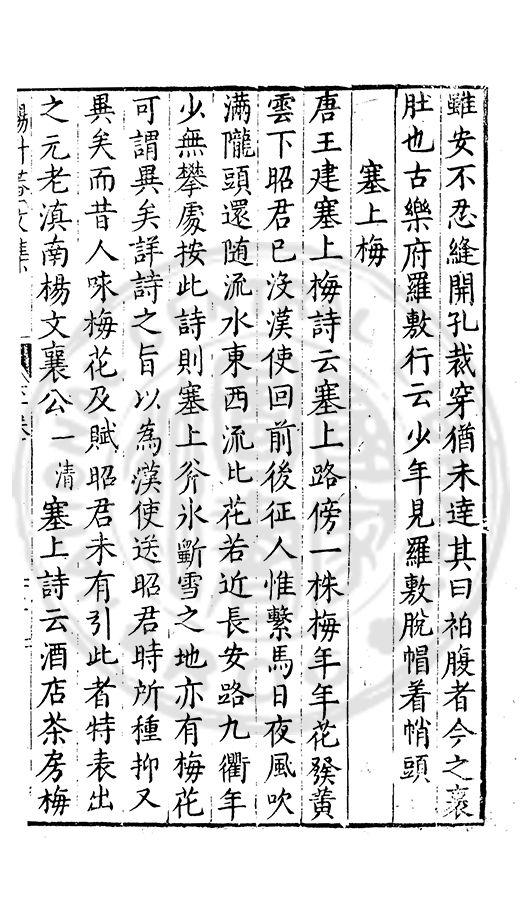 雖安不忍縫開孔裁穿猶未達其曰袙腹者今之裹
肚也古樂府羅敷行云少年見羅敷脫帽着帩頭
塞上梅
唐王建塞上梅詩云塞上路傍一株梅年年花發黃
雲下昭君已沒漢使回前後征人惟繫馬日夜風吹
滿隴頭還随流水東西流比花若近長安路九衢年
少無攀處按此詩則塞上斧氷斸雪之地亦有梅花
可謂異矣詳詩之旨以為漢使送昭君時所種抑又
異矣而昔人咏梅花及賦昭君未有引此者特表出
之元老滇南楊文襄公一清塞上詩云酒店茶房梅